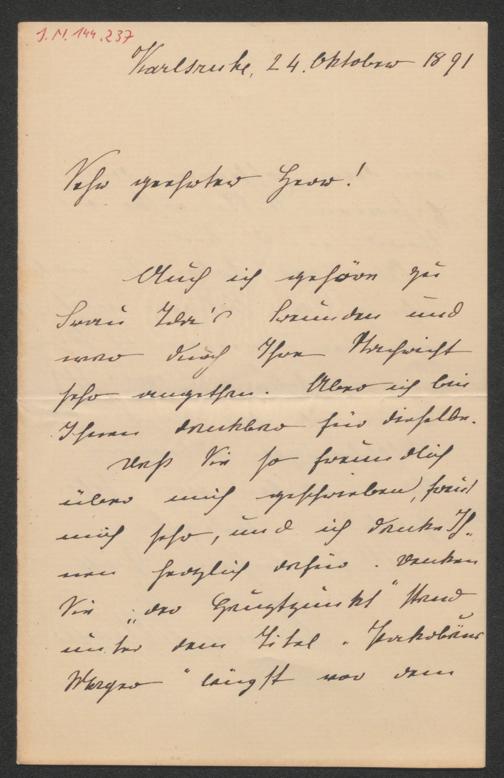 J.N. 144.237
Karlsruhe, 24. Oktober 1891
Sehr geehrter Herr!
Auch ich gehöre zu
Frau Ida's Freunden und
war durch Ihre Nachricht
sehr angethan. Aber ich bin
Ihnen dankbar für dieselbe.
Daß Sie so freundlich
über mich geschrieben, freut
mich sehr, und ich danke Ih-
nen herzlich dafür. Denken
Sie „der Hauptpunkt" stand
unter dem Titel „
" längst vor dem